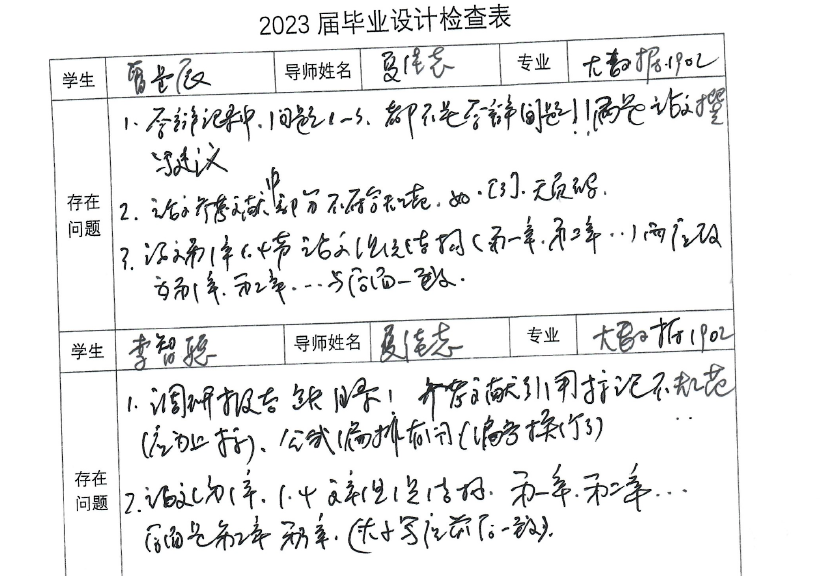 2023 届毕业设计检查表
学生 曾昱辰 导师姓名 夏佳志 专业 大数据1902
存在问题
1. 答辩记录中, 问题1~3, 都不是答辩问题!!而是论文撰
写建议
2. 论文参考文献中部分不符合规范, 如 [3]. 无页码.
3. 论文第1章1.4节 论文组织结构(第一章, 第二章…)而应改
为第1章, 第2章, … 与后面一致.
学生 李智聪 导师姓名 夏佳志 专业 大数据1902
存在问题
1. 调研报告缺目录! 参考文献引用标记不规范
(应为上标), 公式编排有问(编号换行了)
2. 论文第1章, 1.4 文章组织结构, 第一章, 第二章…
后面是第2章 第3章, (大小写应前后一致).